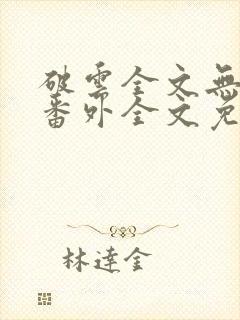 破雲全文無
番外全文免
林達金